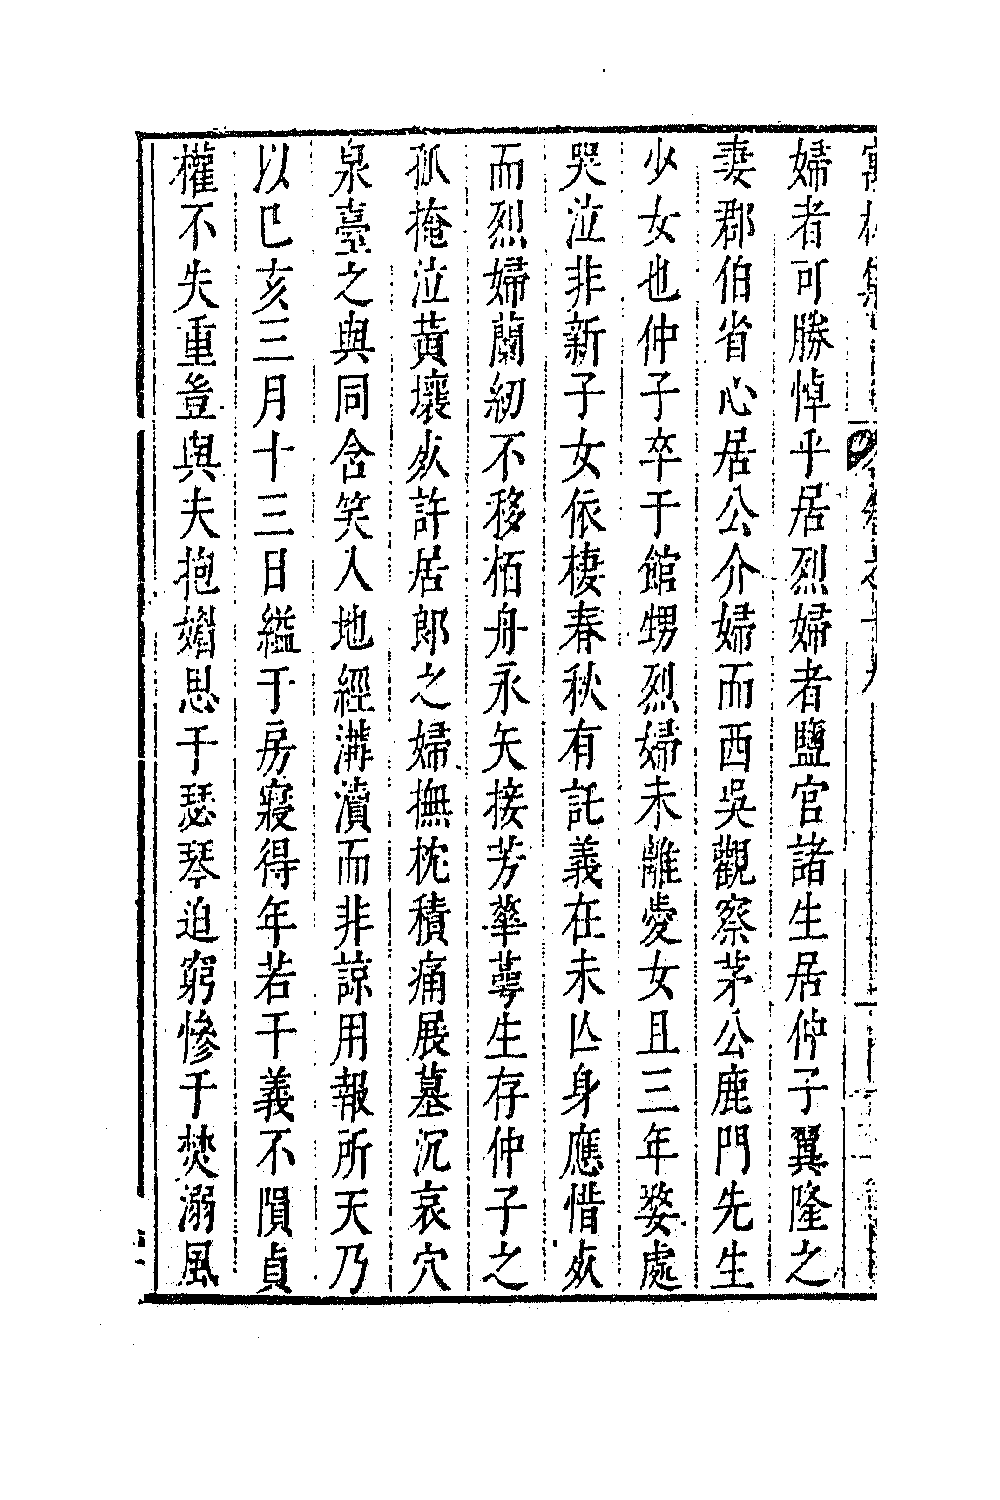 婦者可勝悼乎居烈婦者鹽官諸生居仲子翼隆之
妻郡伯省心居公介婦而西吳觀察茅公鹿門先生
少女也仲子卒于館甥烈婦未離愛女且三年婺處
哭泣非新子女依棲春秋有託義在未亾身應惜死
而烈婦蘭紉不移栢舟永矢接芳華萼生存仲子之
孤掩泣黃壤死許居郎之婦撫枕積痛展墓沉哀穴
泉臺之與同含笑入地經溝瀆而非諒用報所天乃
以巳亥三月十三日縊于房寢得年若干義不隕貞
權不失重豈與夫抱媚思于瑟琴迫窮慘于焚溺風